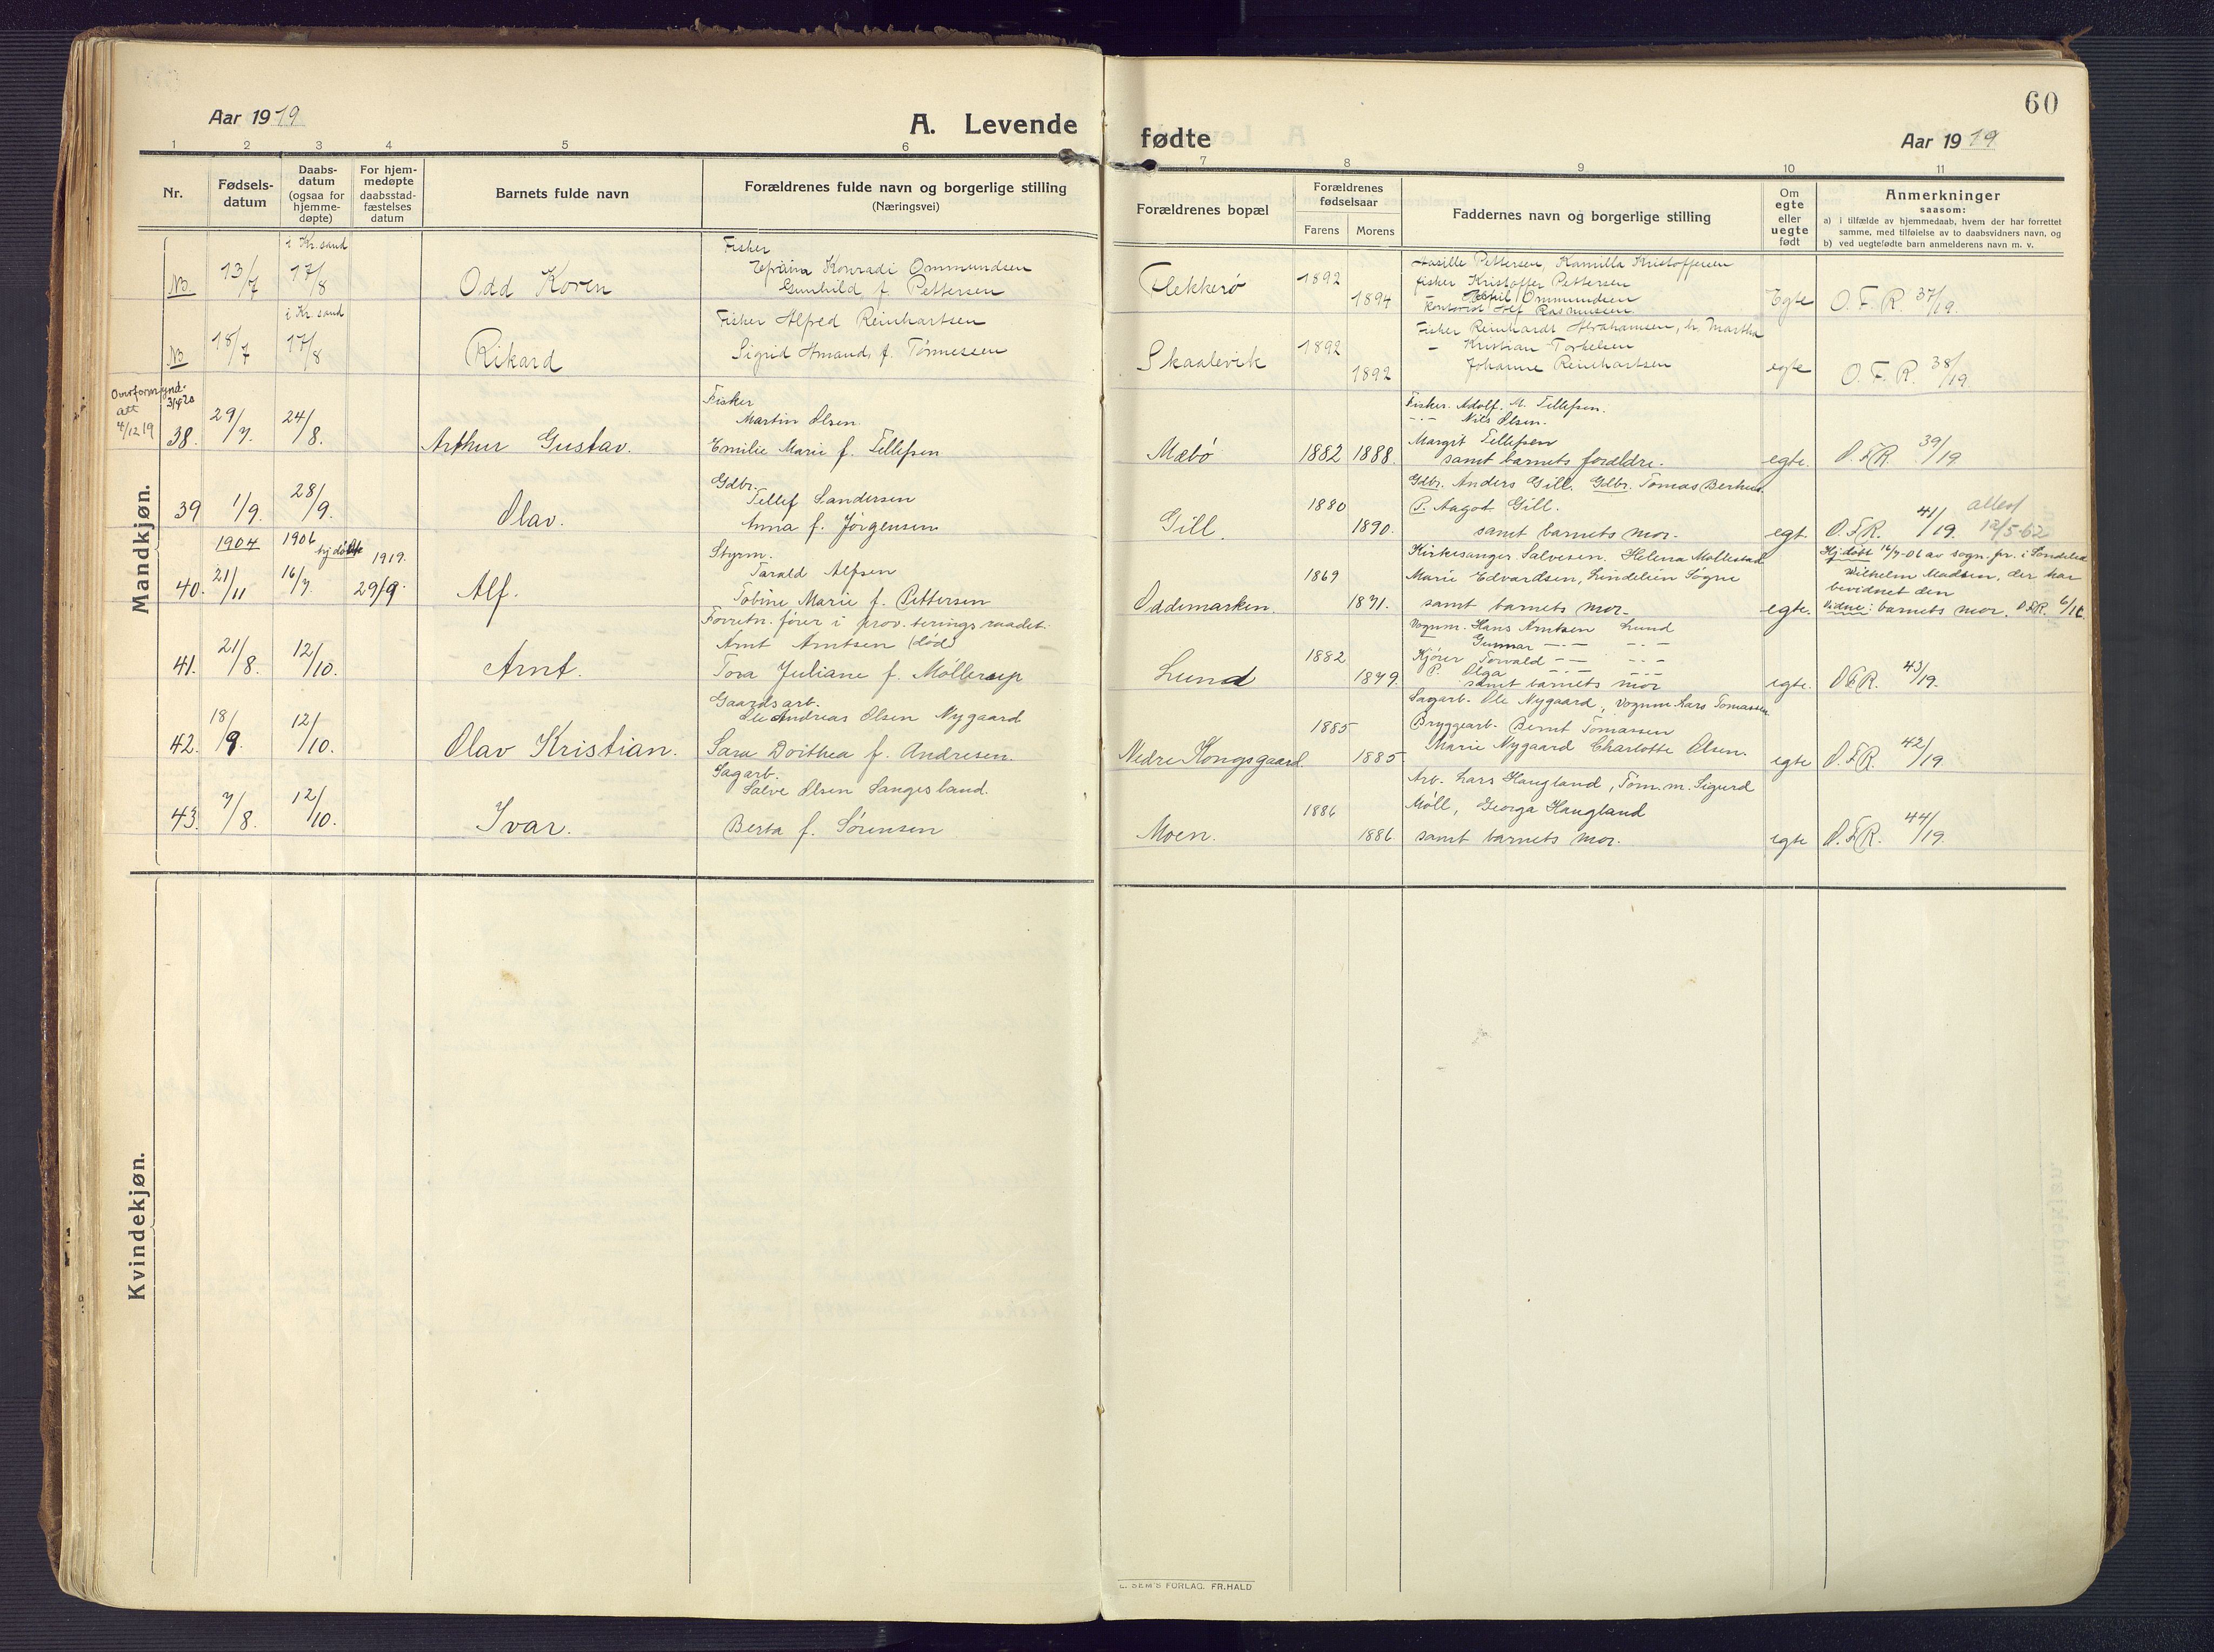 60
Aar 1919
A. Levende fødte
Aar 1919
1 2 3 4 5 6 7 8 9 10 11
Nr.
Fødsels-
datum
Daabs-
datum
(ogsaa for
hjemme-
døpte)
For hjem-
medøpte
daabsstad-
fæstelses
datum
Barnets fulde navn
Forældrenes fulde navn og borgerlige stilling
(Næringsvei)
Forældrenes bopæl
Forældrenes
fødselsaar
Farens Morens
Faddernes navn og borgerlige stilling
Om
egte
eller
uegte
født
Anmerkninger
saasom:
a) i tilfælde av hjemmedaab, hvem der har forrettet
samme, med tilføielse av to daabsvidners navn, og
b) ved uegtefødte barn anmelderens navn m. v.
Mandkjøn.
NB.
13/7
i Kr.sand
17/8
Odd Koren
Fisker
Konradi Ommundsen
Gunhild f. Pettersen
Flekkerø
1892
1894
Pettersen, Kamilla Kristoffersen
fisker Kristoffer Pettersen
Ommundsen
Kontorist Alf Rasmussen
Egte
O. F. R. 37/19.
NB
18/7
i Kr.sand
17/8
Rikard
Fisker Alfred Reinhartsen
Sigrid Amanda f. Tønnessen
Skaalevik
1892
1892
Fisker Reinhardt Abrahamsen, h. Martha
– Kristian Torkelsen
Johanne Reinhartsen
egte
O. F. R. 38/19.
att
4/12 19
38.
29/7.
24/8.
Arthur Gustav.
Fisker
Martin Olsen
Emilie Marie f. Tellefsen
Mæbø
1882 1888.
Fisker. Adolf. M. Tellefsen.
–"– Nils Olsen.
Margit Tellefsen
samt barnets foreldre.
egte.
O.F.R. 39/19
39
1/9.
28/9.
Olav.
Gdbr.
Tellef Sandersen
Anna f. Jørgensen
Gill.
1880
1890.
Gdbr. Anders Gill. Gdbr. Tomas Berhus.
P. Aagot Gill.
samt barnets mor.
egt.
O.F.R. 41/19.
attest
12/5-62
40.
1904
21/11
1906
16/7.
hj.døbt
1919.
29/9.
Alf.
Styrm.
Tarald Alfsen
Tobine Marie f. Pettersen
Oddemarken.
1869
1871.
Kirkesanger Salvesen. Helena Mollestad
Marie Edvardsen, Lindelien Søgne
samt barnets mor.
egte.
Hj.døbt 16/7-06 av sogn.pr. i Søndeled
Wilhelm Madsen, der har
bevidnet den
Vidne: barnets mor. O.F.R.
41.
21/8.
12/10.
Arnt.
Forretn. fører i prov.teringsraadet.
Arnt Arntsen (død)
Tora Juliane f. Møllerup
Lund
1882
1879.
Vognm. Hans Arntsen Lund
Gunnar –"– –"–
Kjører Torvald –"– –"–
P. Olga –"– –"–
samt barnets mor
egte.
O.F.R. 43/19.
42.
18/9.
12/10.
Olav Kristian.
Gaardsarb.
Ole Andreas Olsen Nygaard
Sara Dorthea f. Andresen.
Nedre Kongsgaard.
1885
1885
Sagarb. Ole Nygaard, vognm. Lars Tomassen
Bryggearb. Bernt Tomassen
Marie Nygaard Charlotte Olsen.
egte
O.F.R. 42/19
43.
7/8.
12/10.
Ivar.
Sagarb.
Salve Olsen Langesland.
Berta f. Sørensen
Moen.
1886
1886
Arb. Lars Haugland, Tøm.m. Sigurd
Møll, Georga Haugland
samt barnets mor.
egte
O.F.R. 44/19.
Kvindekjøn.
E. SEM'S FORLAG. FR.HALD